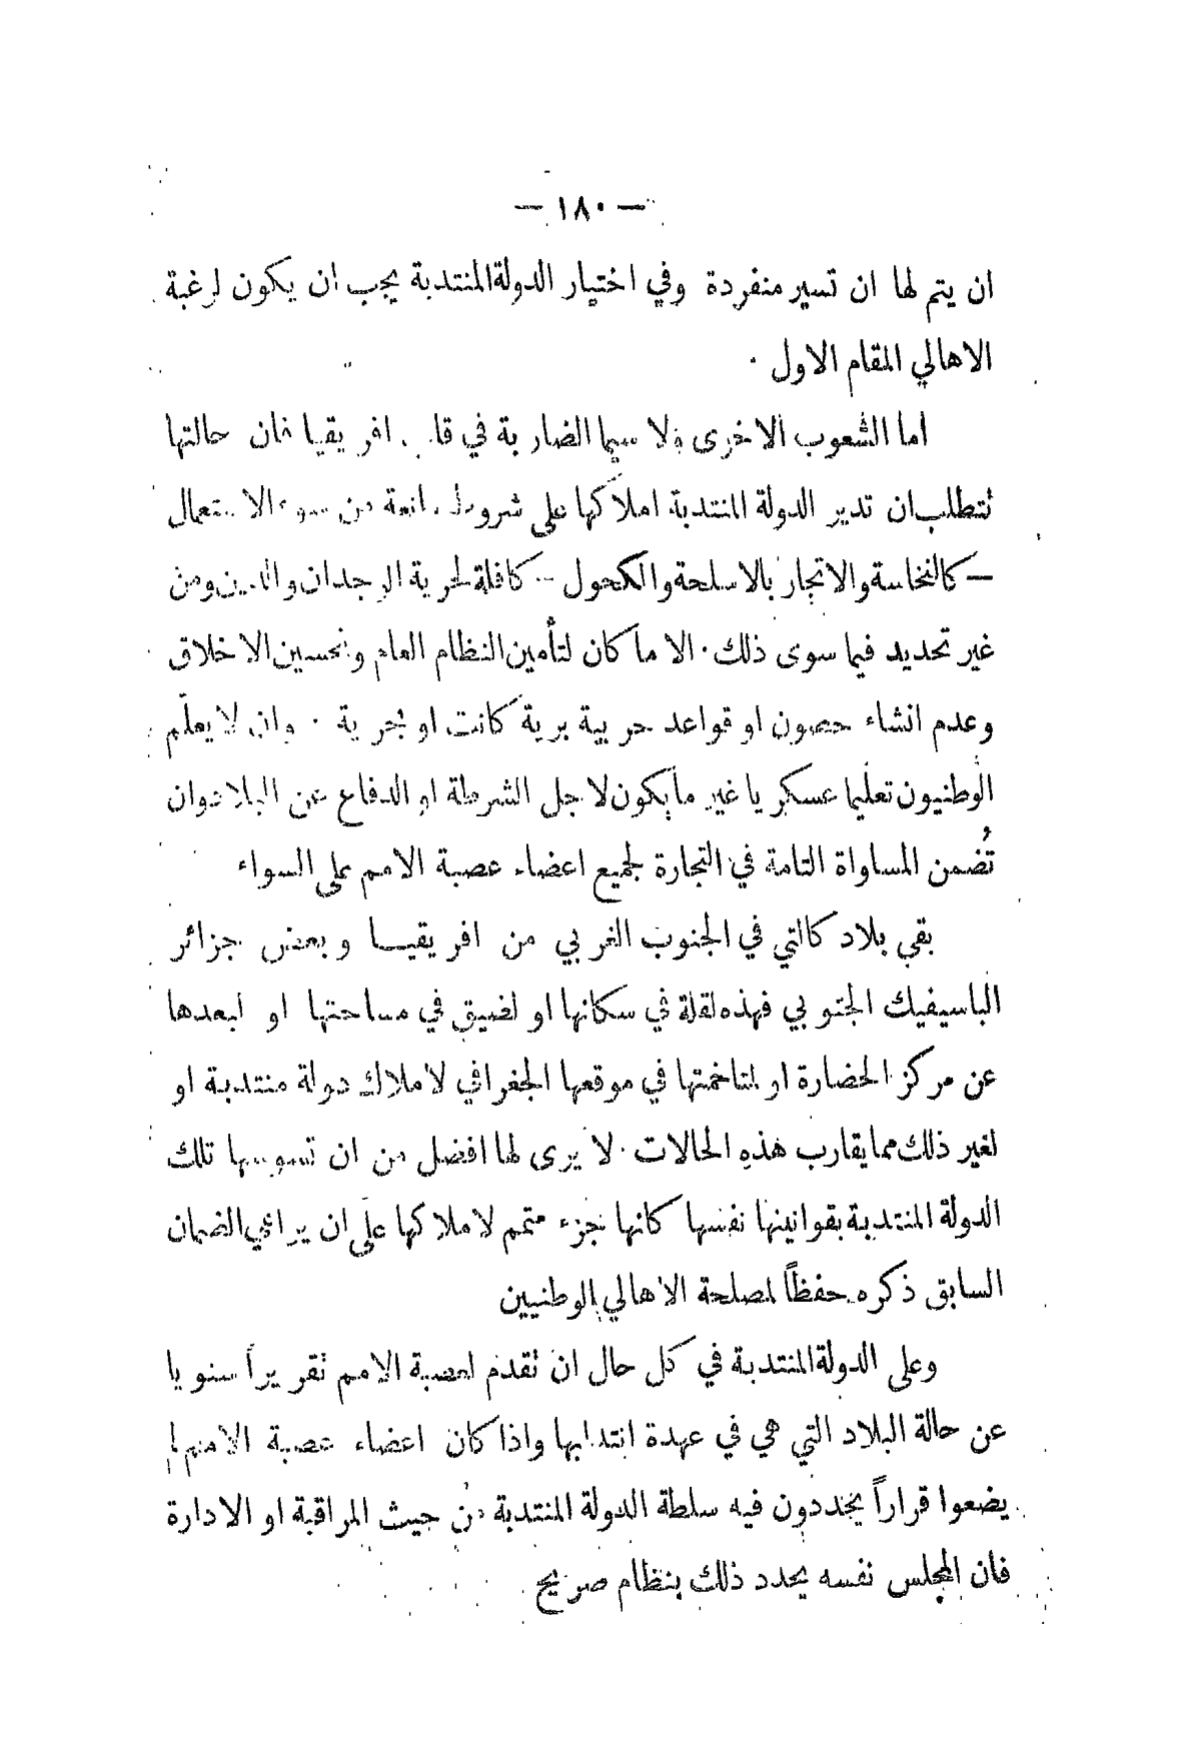 — ١٨٠ —
ان يتم لها ان تسير منفردة وفي اختيار الدولة المنتدبة يجب ان يكون لرغبة
الاهالي المقام الاول ·
اما الشعوب الاخرى ولا سيما الضاربة في افريقيا فان حالتها
تتطلب ان تدير الدولة المنتدبة املاكها على شروط من سوء الاستعمال
— كالنخاسة والاتجار بالاسلحة والكحول — كافلة لحرية الوجدان والدين ومن
غير تحديد فيما سوى ذلك · الا ما كان لتأمين النظام العام وتحسين الاخلاق
وعدم انشاء حصون او قواعد حربية برية كانت او بحرية · وان لا يعلّم
الوطنيون تعليما عسكريا غير ما يكون لاجل الشرطة او الدفاع عن البلاد وان
تُضمن المساواة التامة في التجارة لجميع اعضاء عصبة الامم على السواء
بقي بلاد كالتي في الجنوب الغربي من افريقيا وبعض جزائر
الباسيفيك الجنوبي فهذه لقلة في سكانها او لضيق في مساحتها او لبعدها
عن مركز الحضارة او لمتاخمتها في موقعها الجغرافي لاملاك دولة منتدبة او
لغير ذلك مما يقارب هذه الحالات · لا يرى لها افضل من ان تسوسها تلك
الدولة المنتدبة بقوانينها نفسها كانها جزء متمم لاملاكها على ان يراعي الضمان
السابق ذكره حفظاً لمصلحة الاهالي الوطنيين
وعلى الدولة المنتدبة في كل حال ان تقدم لعصبة الامم تقريراً سنويا
عن حالة البلاد التي هي في عهدة انتدابها واذا كان اعضاء عصبة الامم لم
يضعوا قراراً يحددون فيه سلطة الدولة المنتدبة من حيث المراقبة او الادارة
فان المجلس نفسه يحدد ذلك بنظام صريح